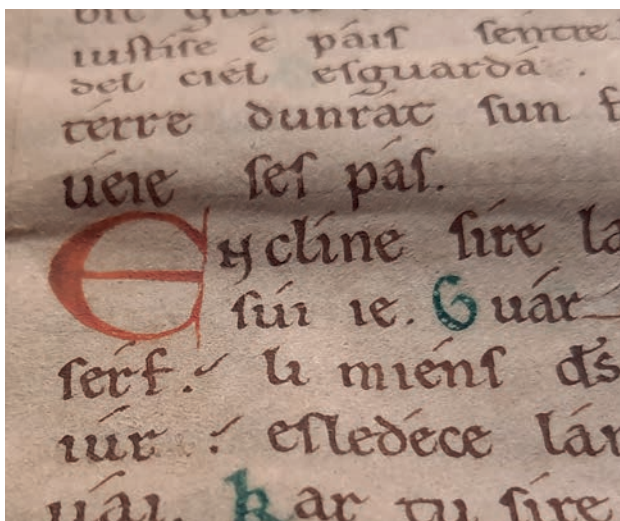 iustise é páis sentre
del ciél esguardá.
térre dunrát sun f
uéie ses pás.
Encline sire la
súi ie. Guár
sérf. li miéns ds
iúr : esledéce lár
uái. kar tu sire